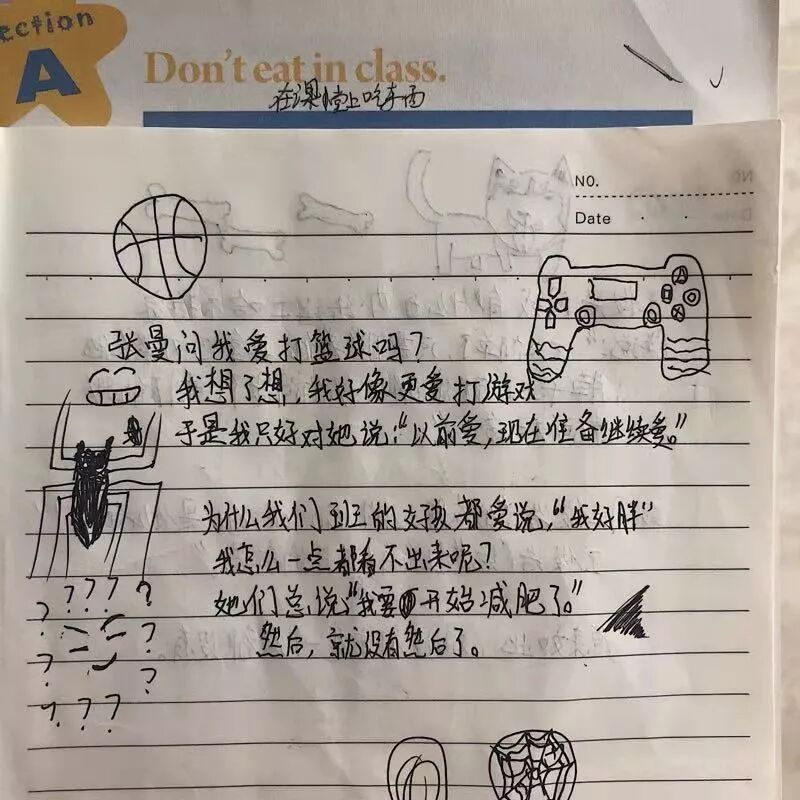 ection
A
Don't eat in class.
在课堂上吃东西
NO.
Date
张曼问我爱打篮球吗？
我想了想，我好像更爱打游戏
于是我只好对她说：“以前爱，现在准备继续爱。”
为什么我们班的女孩都爱说，“我好胖”
我怎么一点都看不出来呢？
她们总说“我要开始减肥了。”
然后，就没有然后了。
? ? ? ?
? ?
? ?
? ? ?